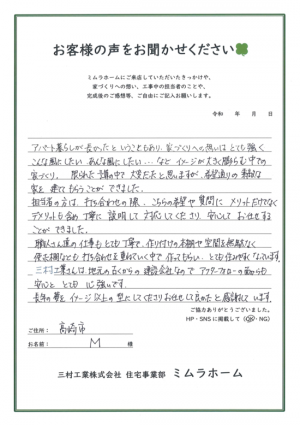 お客様の声をお聞かせください
ミムラホームにご来店していただいたきっかけや、
家づくりへの想い、工事中の担当者のことや、
完成後のご感想等、ご自由にご記入お願いします。
令和 年 月 日
アパート暮らしが長かったということもあり、家づくりへの想いはとても強く
こんな風にしたい あんな風にしたい…など イメージが大きく膨らむ中での
家づくり。限られた予算の中で大変だったと思いますが、希望通りの素敵な
家を建てもらうことができました。
担当者の方は、打ち合わせの際、こちらの希望や質問に メリットだけでなく
デメリットも含め丁寧に説明して対応してくださり、安心してお任せする
ことができました。
職人さん達の仕事もとても丁寧で、作り付けの本棚や空間を無駄なく
使える棚なども打ち合わせを重ねていく中で作ってもらい、とても住みやすくなっています。
三村工業さんは、地元の古くからの建設会社なので アフターフォローの面からも
安心と とても心強いです。
長年の夢をイメージ以上の型にしてくださりお任せして良かったと感謝しています。
ご協力ありがとうございました。
HP・SNSに掲載して(OK・NG)
ご住所: 高崎市
お名前: M 様
三村工業株式会社 住宅事業部 ミムラホーム